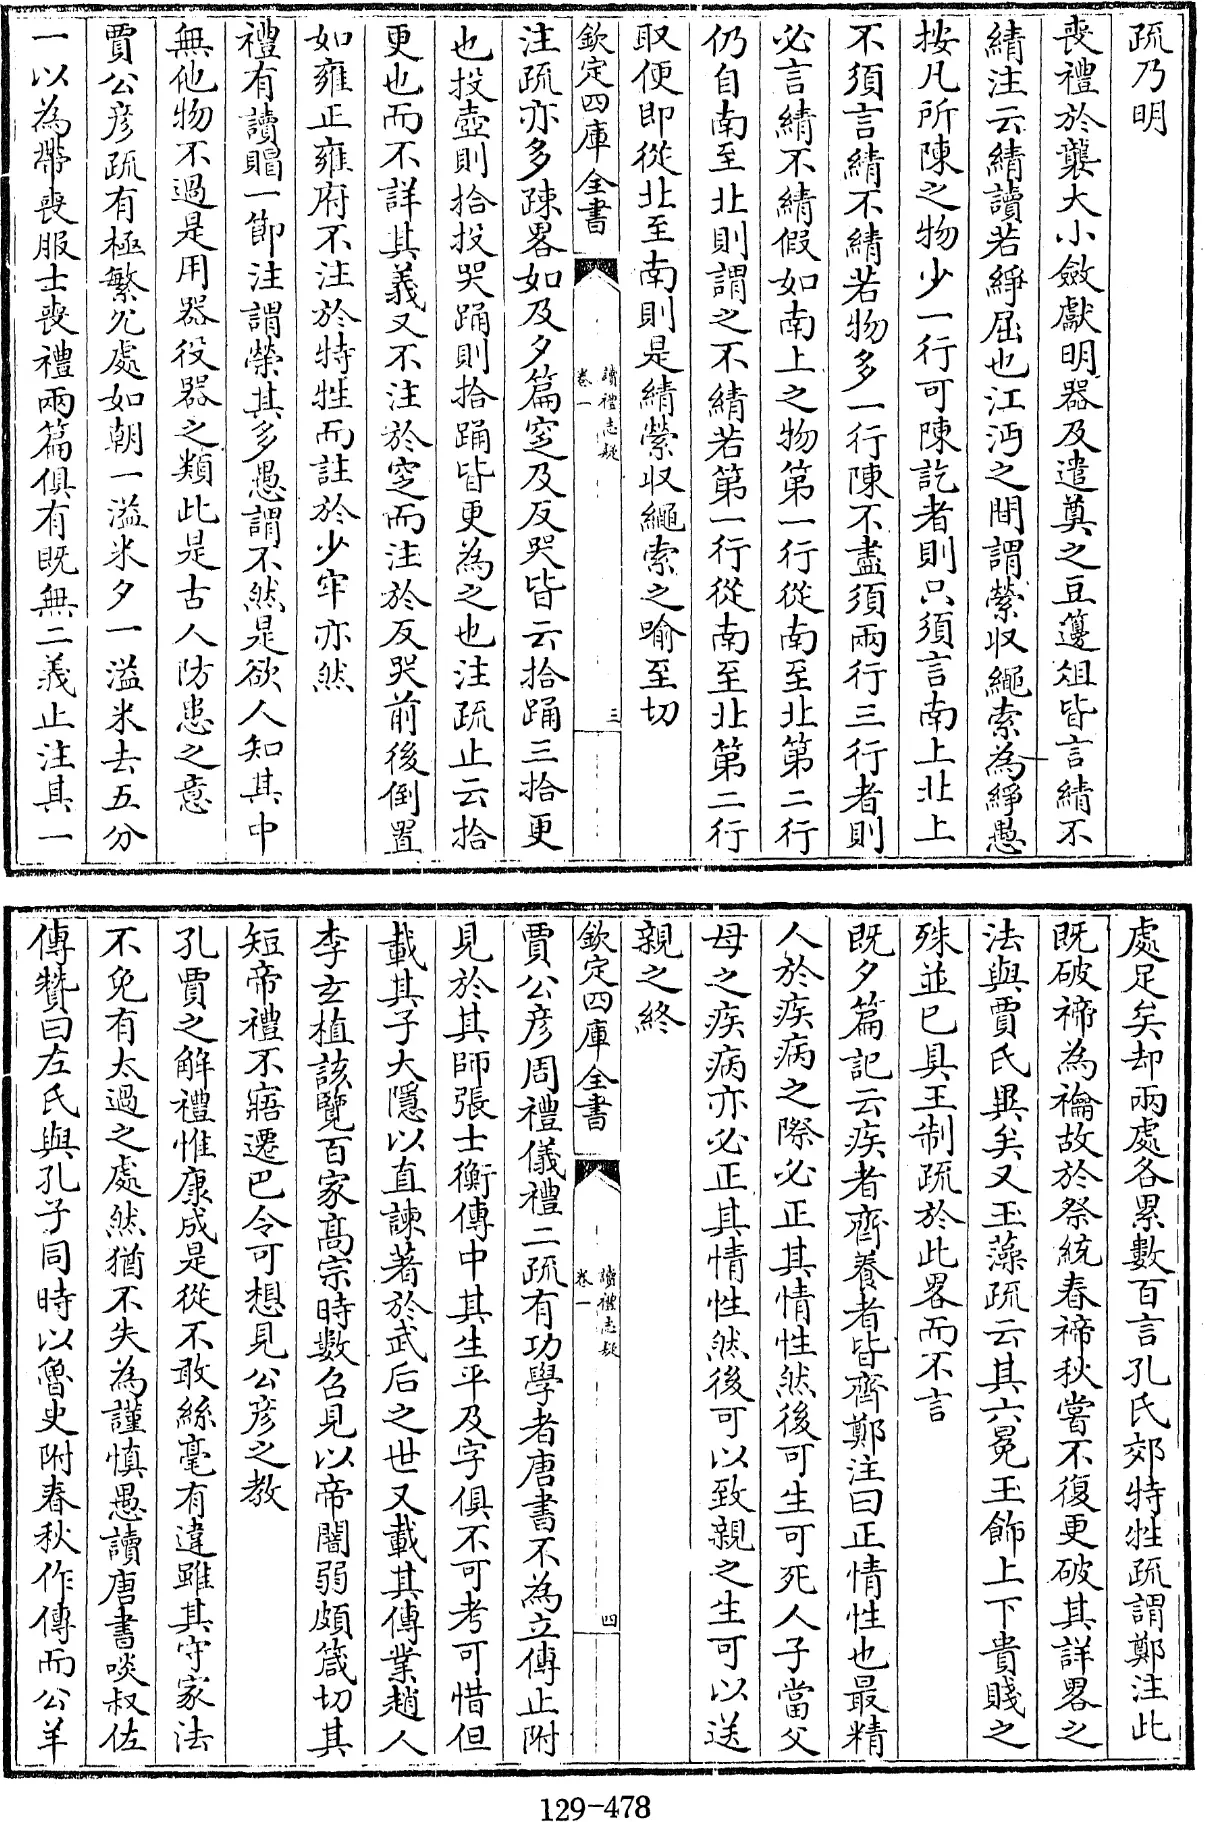 疏乃明
喪禮於襲大小斂獻明器及遣奠之豆籩俎皆言綪不
綪注云綪讀若絣屈也江沔之間謂縈收繩索為絣愚
按凡所陳之物少一行可陳訖者則只須言南上北上
不須言綪不綪若物多一行陳不盡須兩行三行者則
必言綪不綪假如南上之物第一行從南至北第二行
仍自南至北則謂之不綪若第一行從南至北第二行
取便即從北至南則是綪縈收繩索之喻至切
欽定四庫全書
讀禮志疑
卷一
三
注疏亦多疎畧如及夕篇窆及反哭皆云拾踊三拾更
也投壺則拾投哭踊則拾踊皆更為之也注疏止云拾
更也而不詳其義又不注於窆而注於反哭前後倒置
如雍正雍府不注於特牲而註於少牢亦然
禮有讀賵一節注謂榮其多愚謂不然是欲人知其中
無他物不過是用器役器之類此是古人防患之意
賈公彦疏有極繁冗處如朝一溢米夕一溢米去五分
一以為帶喪服士喪禮兩篇俱有既無二義止注其一
處足矣却兩處各累數百言孔氏郊特牲疏謂鄭注此
既破禘為禴故於祭統春禘秋嘗不復更破其詳畧之
法與賈氏異矣又玉藻疏云其六冕玉飾上下貴賤之
殊並已具王制疏於此畧而不言
既夕篇記云疾者齊養者皆齊鄭注曰正情性也最精
人於疾病之際必正其情性然後可生可死人子當父
母之疾病亦必正其情性然後可以致親之生可以送
親之終
欽定四庫全書
讀禮志疑
卷一
四
賈公彦周禮儀禮二疏有功學者唐書不為立傳止附
見於其師張士衡傳中其生平及字俱不可考可惜但
載其子大隱以直諫著於武后之世又載其傳業趙人
李玄植該覽百家高宗時數召見以帝闇弱頗箴切其
短帝禮不寤遷巴令可想見公彦之教
孔賈之解禮惟康成是從不敢絲毫有違雖其守家法
不免有太過之處然猶不失為謹慎愚讀唐書啖叔佐
傳贊曰左氏與孔子同時以魯史附春秋作傳而公羊
129-478